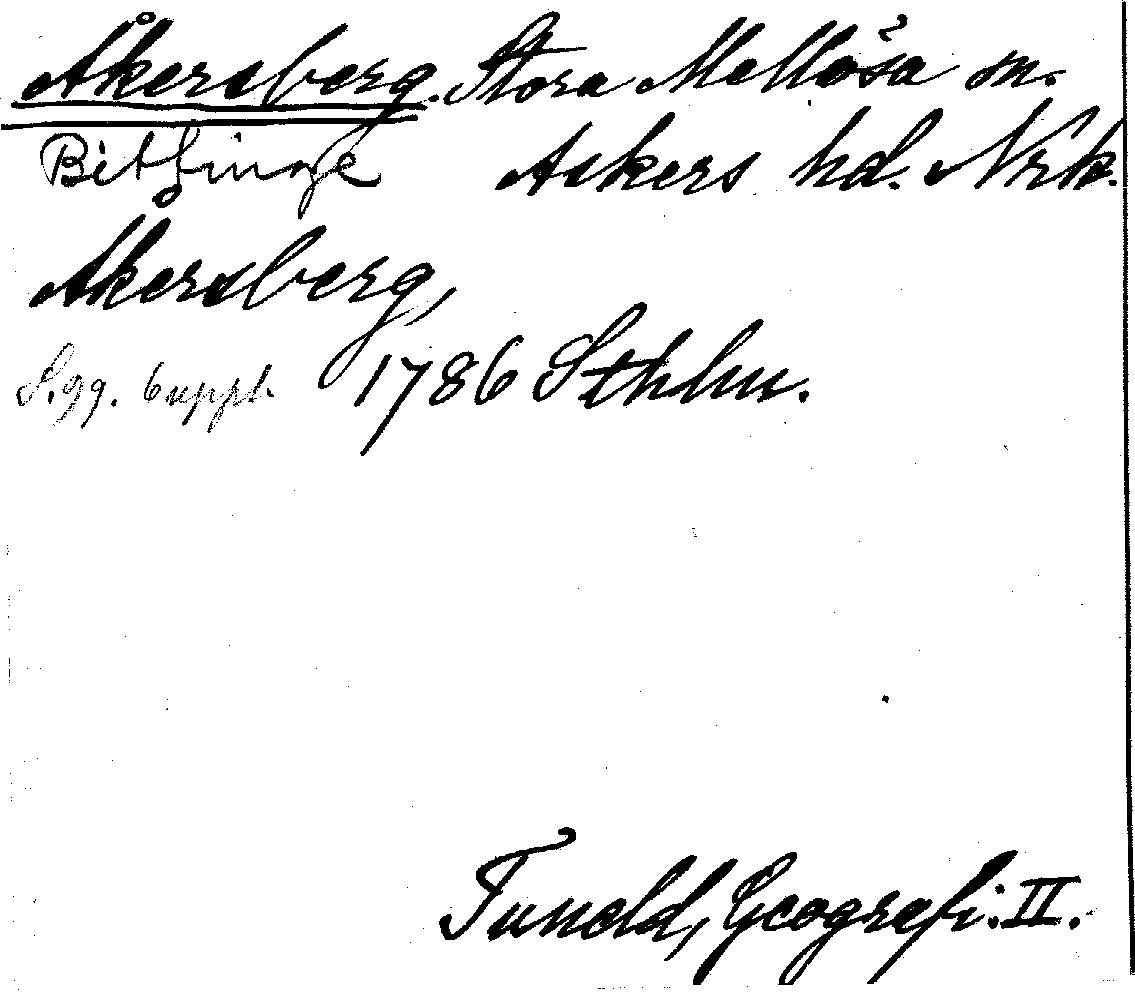 Åkersberg. Stora Mellösa sn.
Askers hd. Nrk.
Åkersberg,
S. 99. 6 uppl. 1786 Sthlm.
Tuneld, Geografi. II.